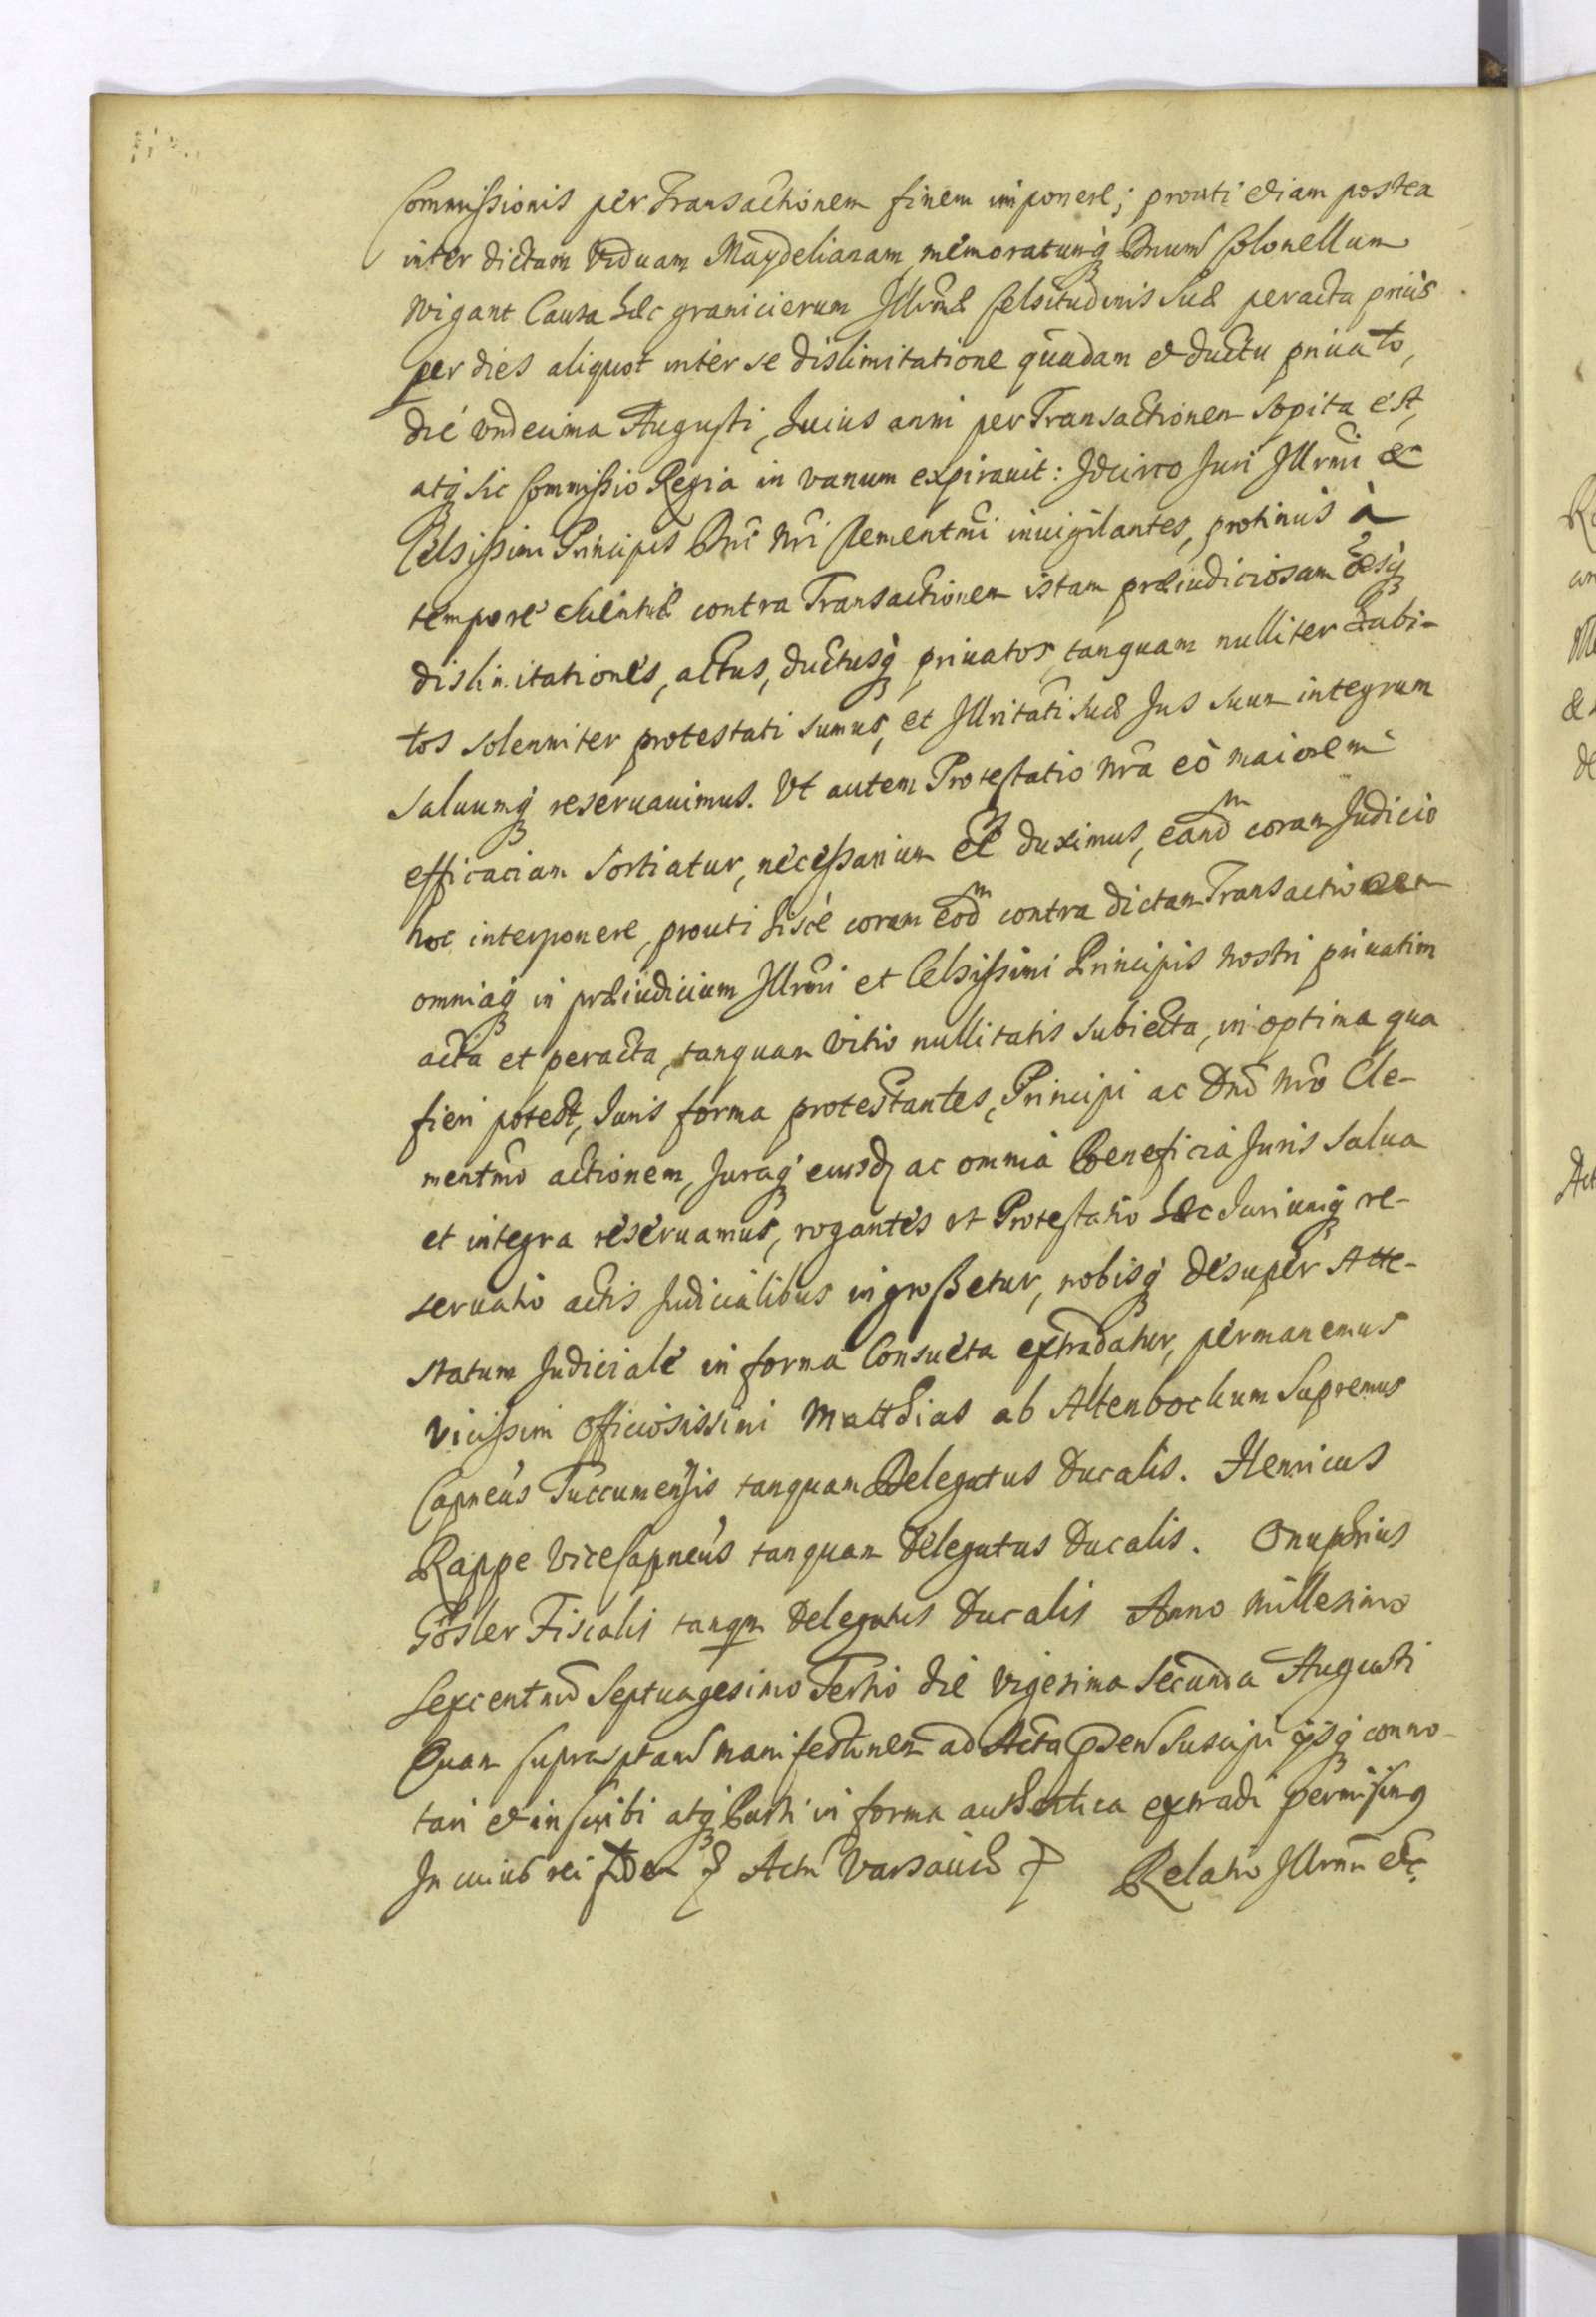 Commissionis per Transactionem finem imponere; prouti etiam postea
inter dictam Viduam Maydelianam, memoratumq Dnum Colonellum
Wigant Causa hæc granicierum Illrmæ Celsitudinis Suæ peracta prius
per dies aliquot inter se dislimitatione quadam et ductu priuato,
die vndecima Augusti, huius anni per Transactionem sopita est,
atq sic Commissio Regia in vanum expirauit: Idcirco Juri Illrmi et
Celsissimi Principis Dni Nri Clementmi inuigilantes, protinus à
tempore contra Transactionem istam præiudiciosam oesq
dislimitationes, actus, ductusq priuatos tanquam nulliter habi-
tos solenniter protestati sumus, et Illritati suæ Jus suum integrum
saluumq reseruauimus. Vt autem Protestatio nra eò maiorem
efficaciam sortiatur, necessarium ee duximus, eandm coram Judicio
hoc interponere, prouti hisce coram eodm contra dictam Transactionem
omniaq in præiudicium Illrmi et Celsissimi Principis nostri priuatim
acta et peracta, tanquam vitio nullitatis subiecta, in optima qua
fieri potest, Juris forma protestantes, Principi ac Dno Nro Cle-
mentmo actionem, Juraq eiusd ac omnia Beneficia Juris salua
et integra reseruamus, rogantes vt Protestatio hæc Juriumq re-
seruatio actis Judicialibus ingrossetur, nobisq desuper Atte-
statum Judiciale in forma Consueta extradatur, permanemus
vicissim Officiosissimi Matthias ab Altenbochum Supremus
Capneus Tuccumensis tanquam Delegatus Ducalis. Henricus
Rappe ViceCapneus tanquam Delegatus Ducalis. Onuphrius
Gösler Fiscalis tanqm Delegatus Ducalis Anno Millesimo
Sexcentmo Septuagesimo Tertio die Vigesima Secunda Augusti
Quam supra manifestnem ad Acta suscipi ijsq conno-
tari et inscribi atq Parti in forma authentica extradi permisimus
In cuius rei fidem Actu Varsauiæ Relatio Illrmi etc.